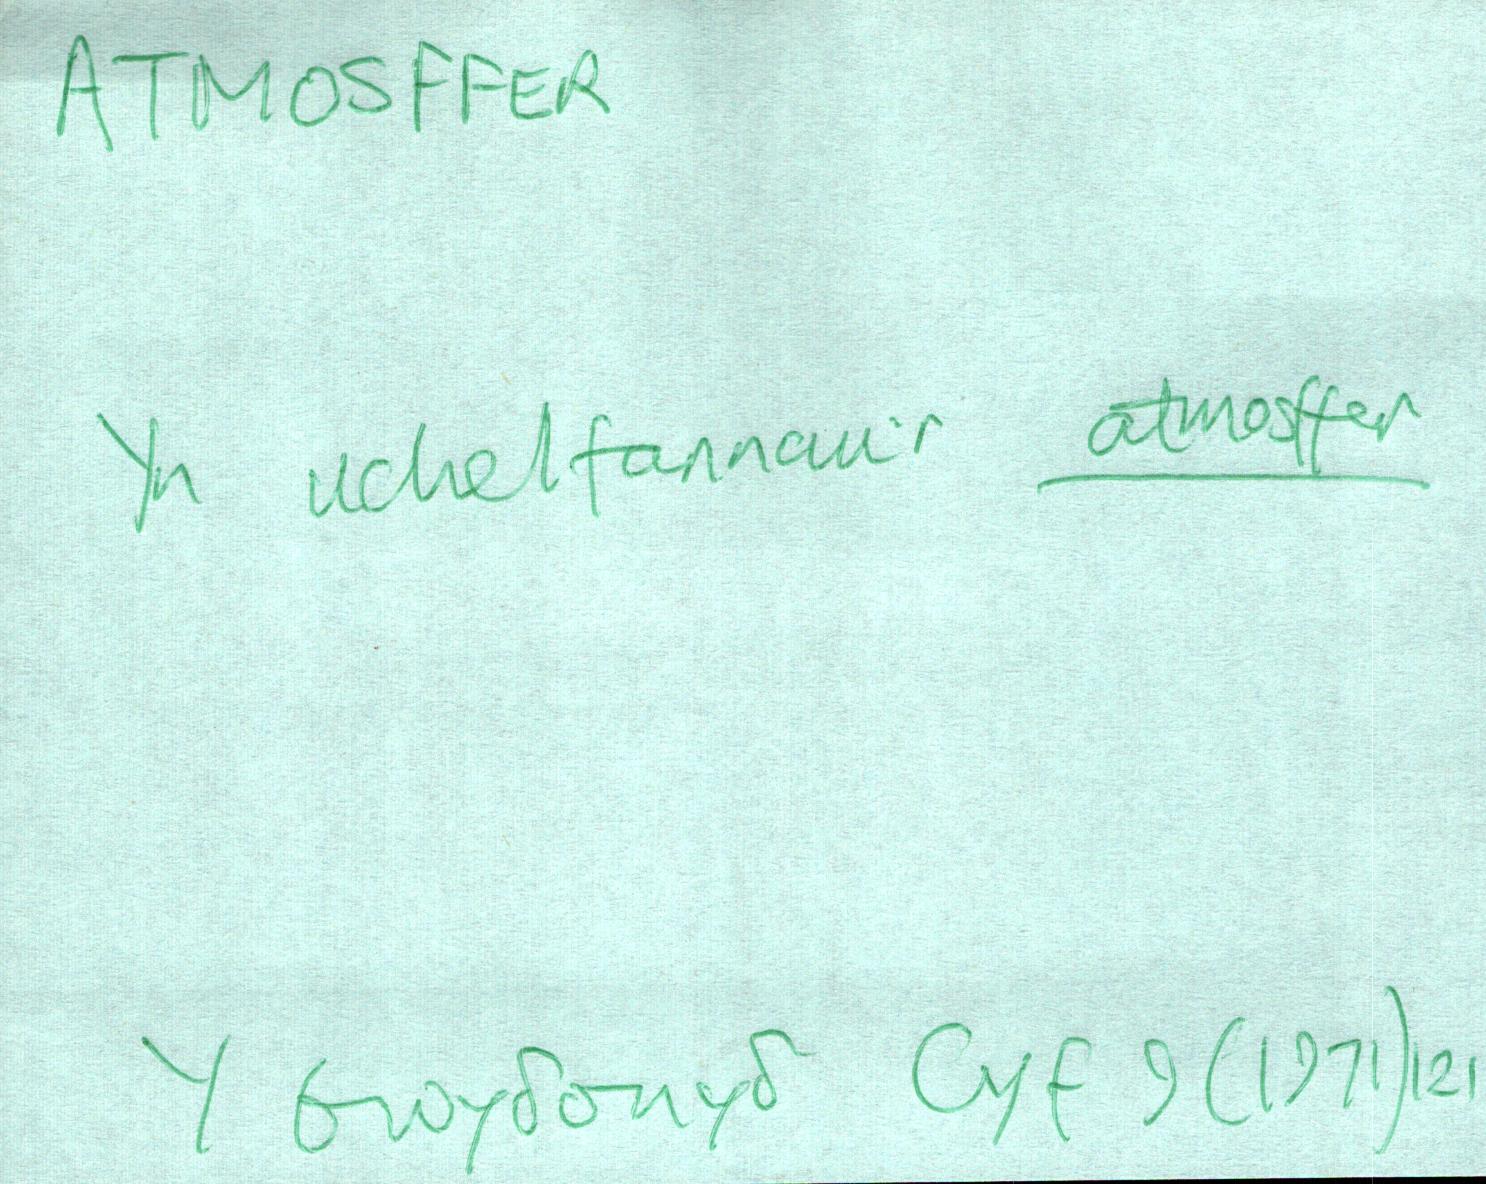 ATMOSFFER
Yn uchelfannau'r atmosffer
Y Gwyδonyδ Cyf 9 (1971) 121